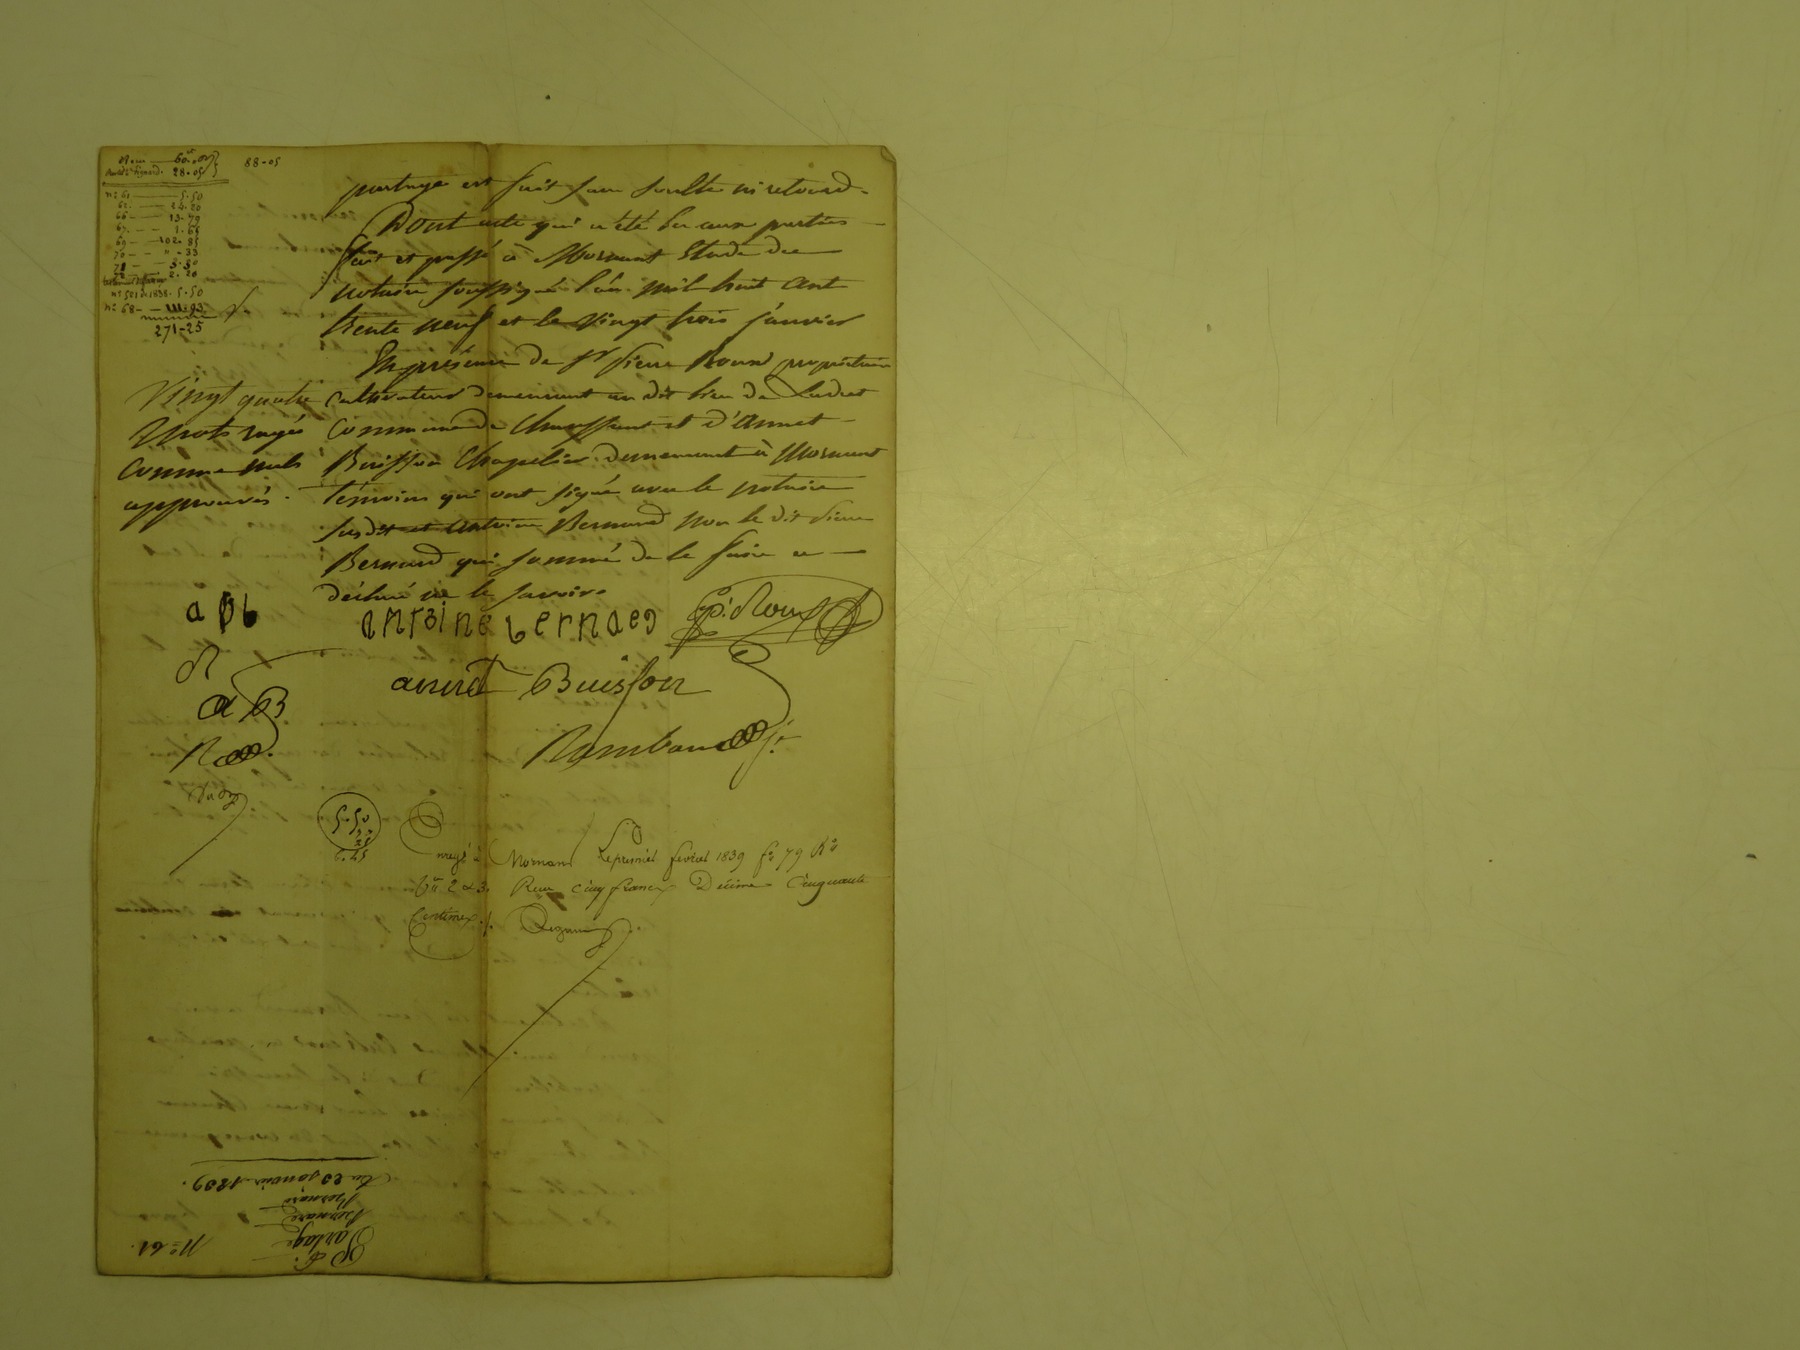 60.00
88-05
28.05
n° 61 — 5.50
62. — 24.20
66 — 13-79
67. — 1.65
69 — 102.85
70 — " - 33
5.50
2.20
n° 501 de 1838. 5.50
n° 68 — 111.93
271-25
partage est fait sans soulte ni retour.
Dont acte qui a été lu aux parties
fait et passé à Mornant Etude du
notaire soussigné l'an mil huit cent
trente neuf et le vingt trois janvier
En présence de Sr pierre Roux propriétaire
cultivateur demeurant au dit lieu de
commune de Chaussant et d'annet
Buisson Chapelier demeurant à Mornant
témoins qui ont signé avec le notaire
susdit et antoine Bernard non le dit pierre
Bernard qui sommé de le faire a
déclaré ne le savoir.
Vingt quatre
mots rayés
comme nuls
approuvés.
antoine bernard
p. Roux
annet Buisson
a B
Rambaud je
5.50
55
6.05
Enregé à Mornant le premier fevrier 1839 f° 79 R°
Cs 2 & 3. Reçu cinq francs Décime Cinquante
Centimes ./.
N° 61.
Partage
Bernard
Bernard
Du 23 janvier 1839.